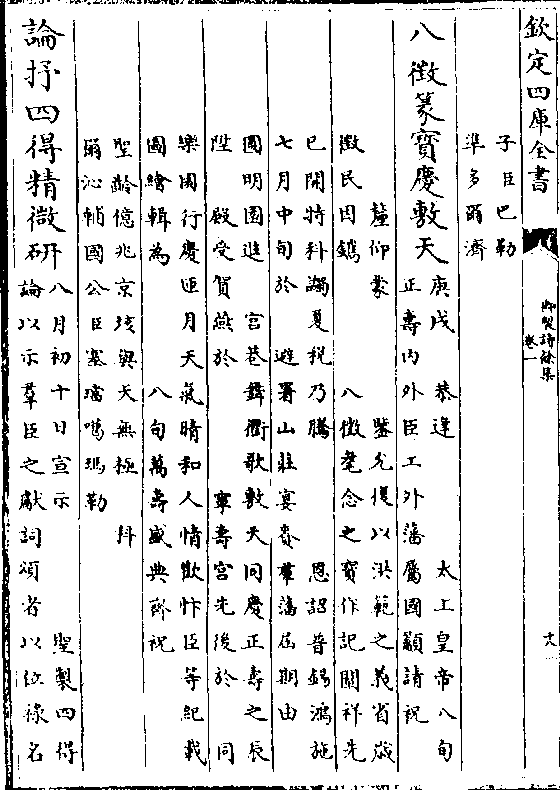 欽定四庫全書
御製詩餘集
卷一
子臣巴勒
準多爾濟
八徵篆寶慶敷天
庚戌 恭逢 太上皇帝八旬
正壽内外臣工外藩屬國籲請祝
釐仰蒙 鑒允復以洪範之義省歲
徵民因鐫 八徵耄念之寶作記闡祥先
已開特科蠲夏稅乃騰 恩詔普錫鴻施
七月中旬於 避暑山莊宴賚羣藩屆期由
圓明園進 宮巷舞衢歌敷天同慶正壽之辰
陞 殿受賀燕於 寧壽宮先後於 同
樂園行慶匝月天氣晴和人情歡忭臣等紀載
圖繪輯為 八旬萬壽盛典齊祝
聖齡億兆京垓與天無極 科
爾沁輔國公臣塞璫噶瑪勒
論抒四得精微研
八月初十日宣示 聖製四得
論以示羣臣之獻詞頌者以位祿名